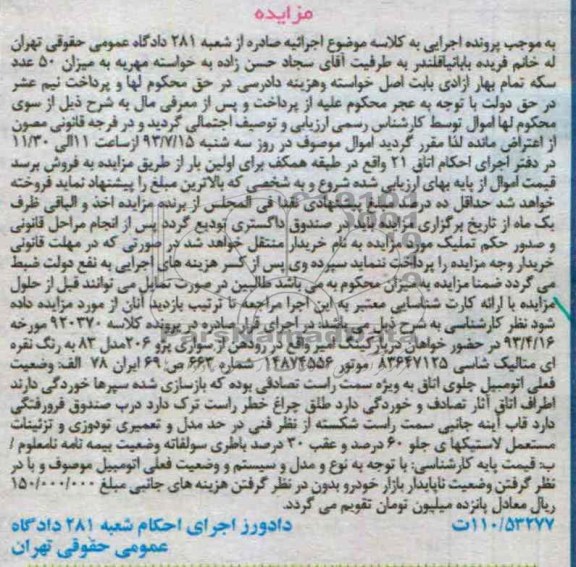 مزایده
به موجب پرونده اجرایی به کلاسه موضوع اجرائیه صادره از شعبه ۲۸۱ دادگاه عمومی حقوقی تهران
له خانم فریده باباتیافلندر به طرفیت آقای سجاد حسن زاده به خواسته مهریه به میزان ۵۰ عدد
سکه تمام بهار ازادی بابت اصل خواسته وهزینه دادرسی در حق محکوم لها و پرداخت نیم عشر
در حق دولت با توجه به عجر محکوم علیه از پرداخت و پس از معرفی مال به شرح ذیل از سوی
محکوم لها اموال توسط کارشناس رسمی ارزیابی و توصیف اجتمالی گردید و در فرجه قانونی مصون
از اعتراض مانده لذا مقرر گردید اموال موصوف در روز سه شنبه ۹۳/۷/۱۵ ازساعت ۱۱الی ۱۱/۳۰
در دفتر اجرای احکام اتاق ۲۱ واقع در طبقه همکف برای اولین بار از طریق مزایده به فروش برسد
قیمت اموال از پایه بهای ارزیابی شده شروع و به شخصی که بالاترین مبلغ را پیشنهاد نماید فروخته
خواهد شد حداقل ده درصد مبلغ پیشنهادی نقدا فی المجلس از برنده مزایده اخذ و الباقی ظرف
یک ماه از تاریخ برگزاری مزایده باید در صندوق داگستری تودیع گردد پس از انجام مراحل قانونی
و صدور حکم تملیک مورد مزایده به نام خریدار منتقل خواهد شد در صورتی که در مهلت قانونی
خریدار وجه مزایده را پرداخت ننماید سپرده وی پس از کسر هزینه های اجرایی به نفع دولت ضبط
می گردد ضمنا مزایده به میزان محکوم به می باشد طالبین در صورت تمایل می توانند قبل از حلول
مزایده با ارائه کارت شناسایی معتبر به این اجرا مراجعه تا ترتیب بازدید آنان از مورد مزایده داده
شود نظر کارشناسی به شرح ذیل می باشد: در اجرای قرار صادره در پرونده کلاسه ۹۲۰۳۷۰ مورخه
۹۳/۴/۱۶ در حضور خواهان در پارکینگ واقع در رودهن از سواری پژو ۲۰۶مدل ۸۳ به رنگ نقره
ای متالیک شاسی ۸۳۶۴۷۱۲۵ موتور ۱۴۸۷۴۵۵۶ شماره ۶۶۳ ص ۶۹ ایران ۷۸ الف: وضعیت
فعلی اتومبیل جلوی اتاق به ویژه سمت راست تصادفی بوده که بازسازی شده سپرها خوردگی دارند
اطراف اتاق آثار تصادف و خوردگی دارد طلق چراغ خطر راست ترک دارد درب صندوق فرورفتگی
دارد قاب آینه جانبی سمت راست شکسته از نظر فنی در حد مدل و تعمیری تودوزی و تزئینات
مستعمل لاستیکها ی جلو ۶۰ درصد و عقب ۳۰ درصد باطری سولفاته وضعیت بیمه نامه نامعلوم /
ب: قیمت پایه کارشناسی: با توجه به نوع و مدل و سیستم و وضعیت فعلی اتومبیل موصوف و با در
نظر گرفتن وضعیت ناپایدار بازار خودرو بدون در نظر گرفتن هزینه های جانبی مبلغ ۱۵۰/۰۰۰/۰۰۰
ریال معادل پانزده میلیون تومان تقویم می گردد.
۱۱۰/۵۳۲۷۷ت دادورز اجرای احکام شعبه ۲۸۱ دادگاه
عمومی حقوقی تهران